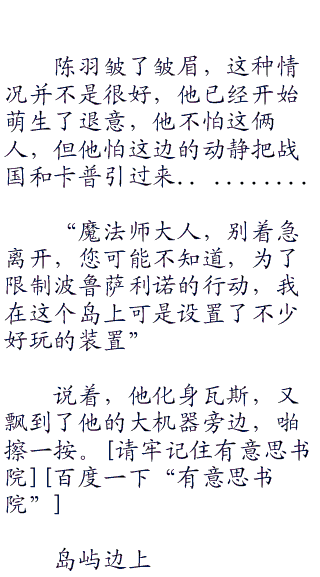 陈羽皱了皱眉，这种情
况并不是很好，他已经开始
萌生了退意，他不怕这俩
人，但他怕这边的动静把战
国和卡普引过来.. ........
“魔法师大人，别着急
离开，您可能不知道，为了
限制波鲁萨利诺的行动，我
在这个岛上可是设置了不少
好玩的装置”
说着，他化身瓦斯，又
飘到了他的大机器旁边，啪
擦一按。[请牢记住有意思书
院][百度一下“有意思书
院”]
岛屿边上